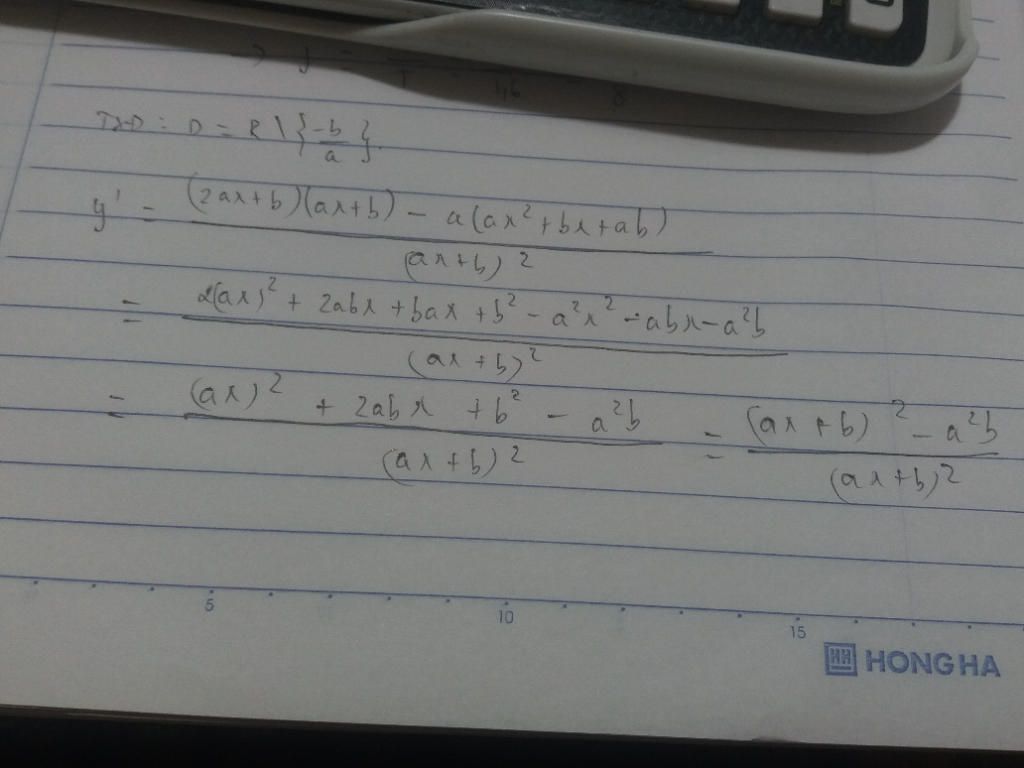 TXĐ: D = R \ { -b/a }.
y' = ((2ax+b)(ax+b) - a(ax² + bx + ab)) / (ax+b)²
= (2(ax)² + 2abx + bax + b² - a²x² - abx - a²b) / (ax+b)²
= ((ax)² + 2abx + b² - a²b) / (ax+b)² = ((ax+b)² - a²b) / (ax+b)²
5 10 15
HONG HA